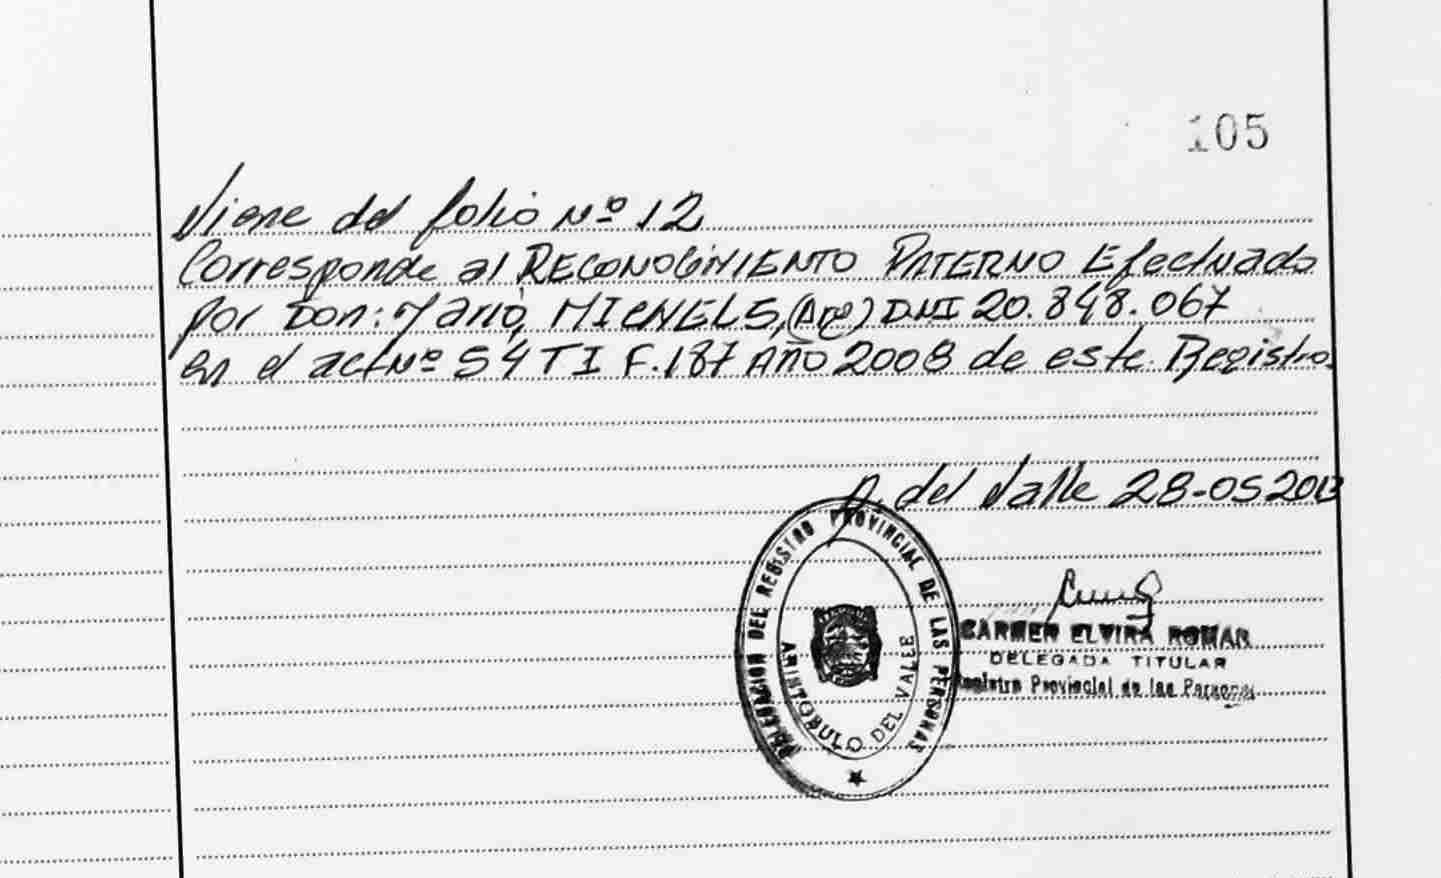 105
Viene del folio Nº 12
Corresponde al RECONOCIMIENTO PATERNO Efectuado
por Don: Mario, MICHELS, (Arg) DNI 20.848.067
en el act Nº 54 TI F.187 AÑO 2008 de este Registro.
A. del Valle 28-05 2013
DELEGACION DEL REGISTRO PROVINCIAL DE LAS PERSONAS
ARISTOBULO DEL VALLE
CARMEN ELVIRA ROMAN
DELEGADA TITULAR
Registro Provincial de las Personas